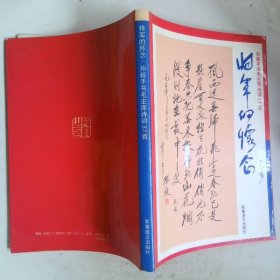 将军的怀念 孙毅手书毛主席诗词37首
军事译文出版社
孙毅手书毛主席诗词37首
将军的怀念
风雨送春归飞雪迎春到已是
悬崖百丈冰犹有花枝俏俏也不
争春只把春来报待到山花烂
漫时她在丛中笑
孙毅
军事译文出版社